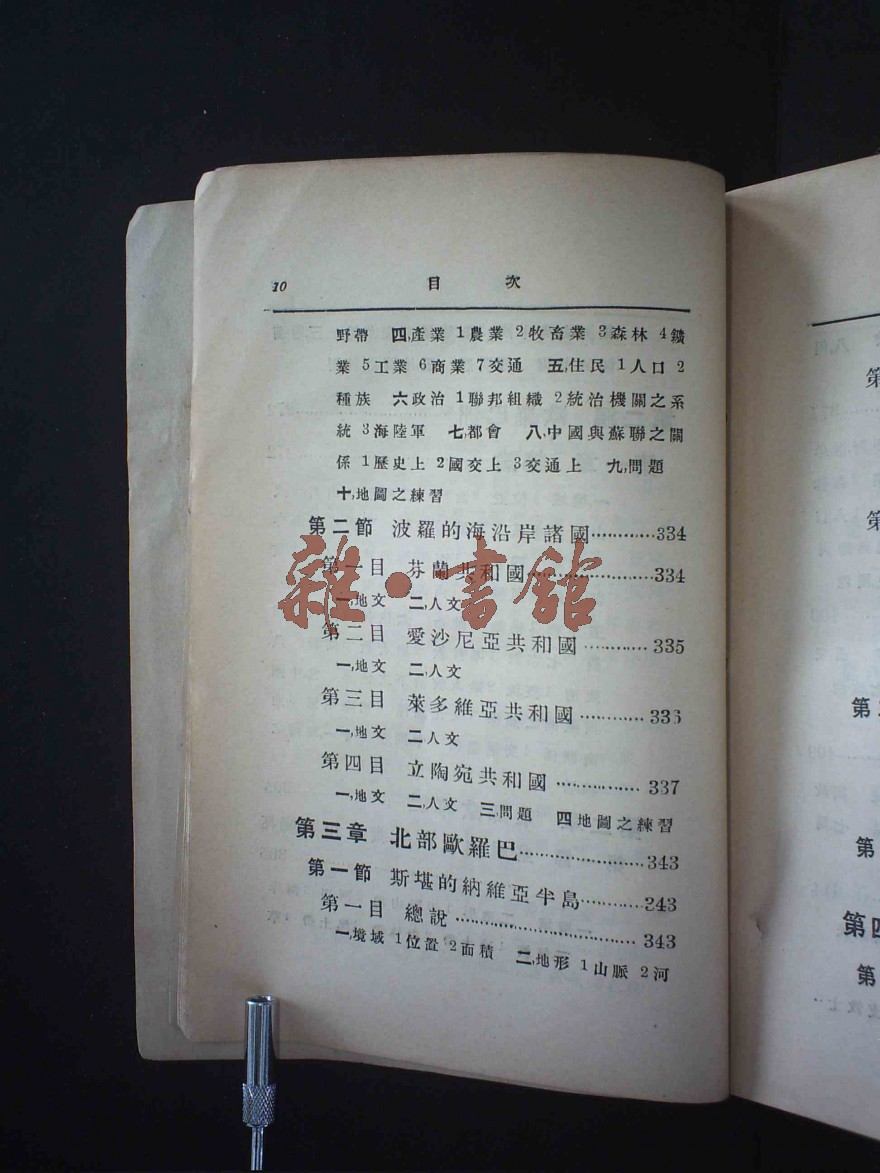 10 目 次
野帶 四,產業 1農業 2牧畜業 3森林 4鑛
業 5工業 6商業 7交通 五,住民 1人口 2
種族 六政治 1聯邦組織 2統治機關之系
統 3海陸軍 七,都會 八,中國與蘇聯之關
係 1歷史上 2國交上 3交通上 九,問題
十,地圖之練習
第二節 波羅的海沿岸諸國…………334
第一目 芬蘭共和國……………………334
一,地文 二,人文
第二目 愛沙尼亞共和國…………335
一,地文 二,人文
第三目 萊多維亞共和國…………336
一,地文 二人文
第四目 立陶宛共和國……………337
一,地文 二,人文 三,問題 四地圖之練習
第三章 北部歐羅巴……………………343
第一節 斯堪的納維亞半島…………343
第一目 總說……………………………343
一,境域 1位置 2面積 二,地形 1山脈 2河
雜·書館
第
第
第
第
第四
第